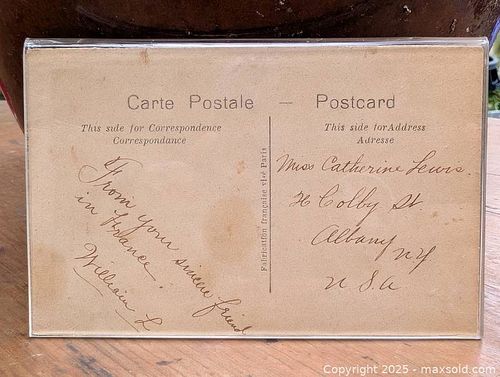 Carte Postale — Postcard
This side for Correspondence
Correspondance
This side for Address
Adresse
Fabrication française visé Paris
From your sincere friend
in France.
William L
Miss Catherine Lewis.
26 Colby St
Albany NY
U S a
Copyright 2025 - maxsold.com